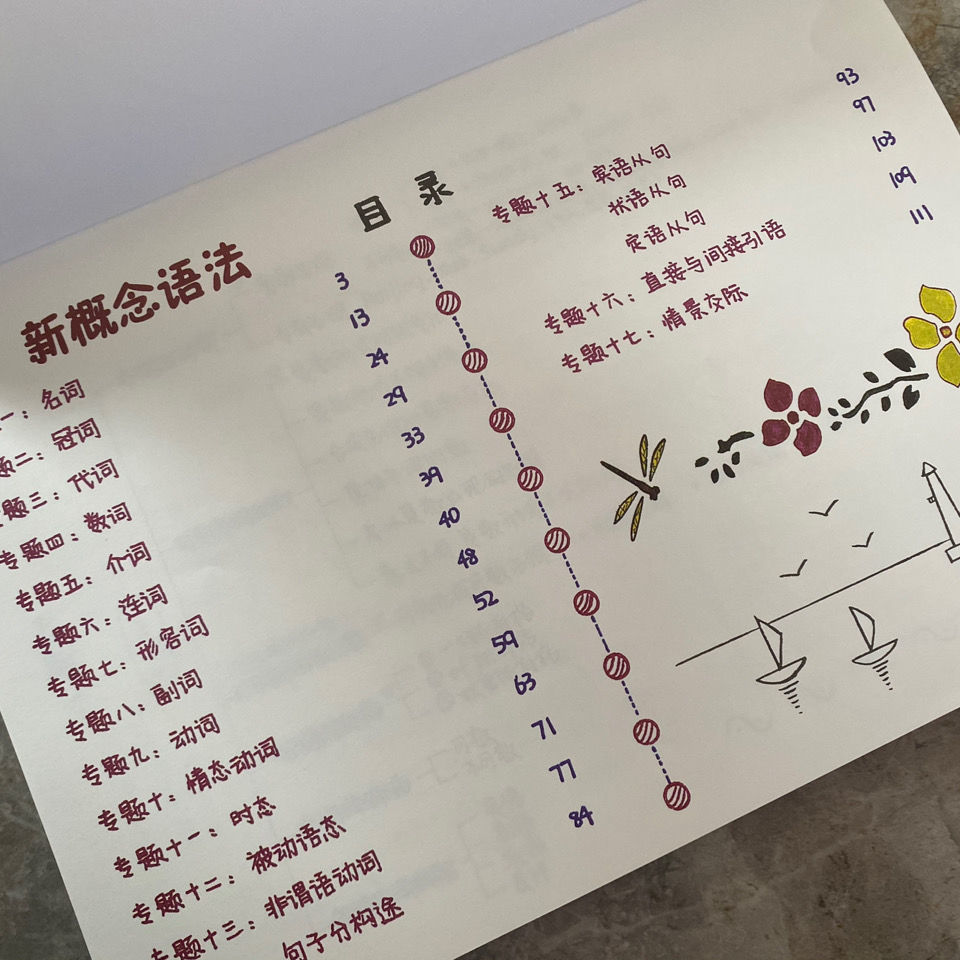 目 录
新概念语法
一：名词 3
题二：冠词 13
题三：代词 24
专题四：数词 29
专题五：介词 33
专题六：连词 39
专题七：形容词 40
专题八：副词 48
专题九：动词 52
专题十：情态动词 59
专题十一：时态 63
专题十二：被动语态 71
专题十三：非谓语动词 77
句子分构途 84
专题十五：宾语从句 93
状语从句 97
定语从句 103
专题十六：直接与间接引语 109
专题十七：情景交际 111